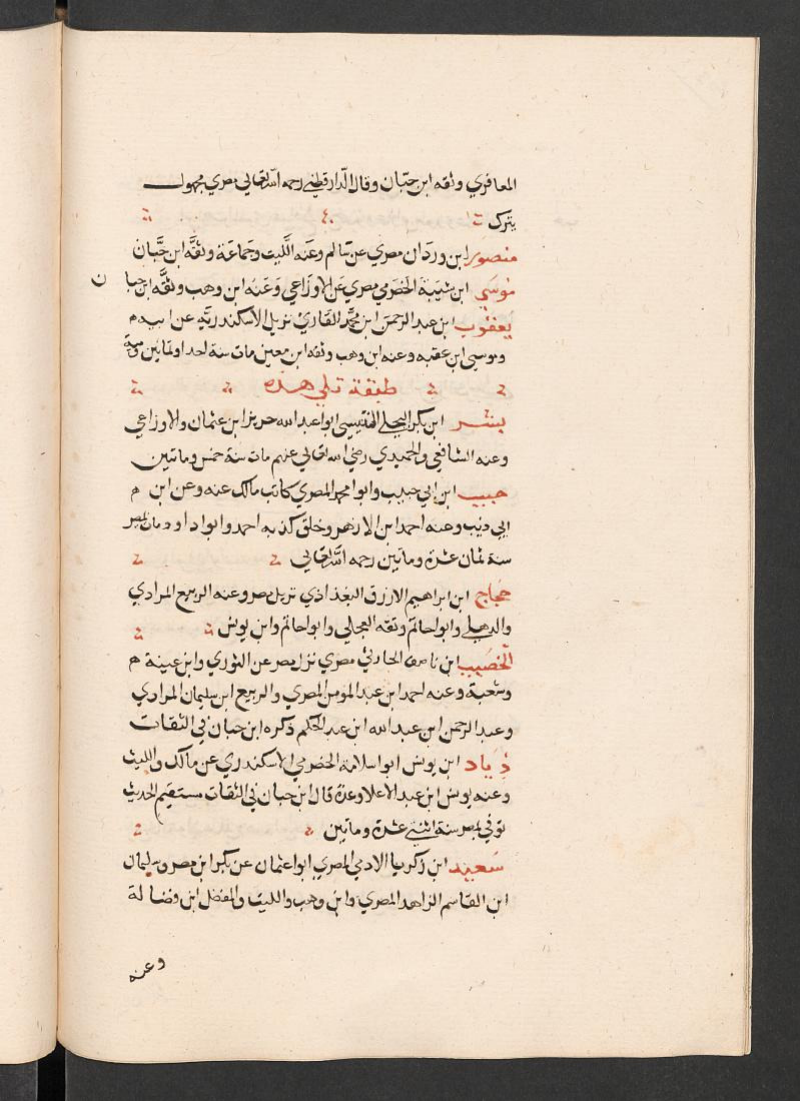 المعافري وثقه ابن حبان وقال الدارقطني رحمه الله تعالى مصري مجهول
يترك
منصور ابن وردان مصري عن سالم وعنه الليث وجماعة وثقه ابن حبان
موسى ابن شيبة الحضرمي مصري عن الاوزاعي وعنه ابن وهب وثقه ابن حبا ن
يعقوب ابن عبد الرحمن ابن محمد القاري نزيل الاسكندرية عن ابيه م
وموسى ابن عقبه وعنه ابن وهب وثقه ابن معين مات سنة احدا وثمانين ومية
طبقة تلي هذه
بشر ابن بكر البجلي التنيسي ابوا عبد الله حريز ابن عثمان والاوزاعي
وعنه الشافعي والحميدي رضي الله تعالى عنهم مات سنة خمس وماتين
حبيب ابن ابي حبيب وابوا محمد المصري كاتب مالك عنه وعن ابن م
ابي ذيب وعنه احمد ابن الازهر وخلق كذبه احمد وابوا داوود مات بمصر
سنة ثمان عشرة وماتين رحمه الله تعالى
حجاج ابن ابراهيم الازرق البغداذي نزيل مصر وعنه الربيع المرادي
والذهلي وابوا حاتم وثقه العجلي وابوا حاتم وابن يونس
الخصيب ابن ناصح الحارثي مصري نزل مصر عن الثوري وابن عينة م
وشعبة وعنه احمد ابن عبد المومن المصري والربيع ابن سليمان المرادي
وعبد الرحمن ابن عبد الله ابن عبد الحكم ذكره ابن حبان في الثقات
زياد ابن يونس ابوا سلامة الحضرمي الاسكندري عن مالك والليث
وعنه يونس ابن عبد الاعلا وعدة قال ابن حبان في الثقات مستقيم الحديث
توفي بمصر سنة اثني عشرة وماتين
سعيد ابن زكريا الادمي المصري ابوا عثمان عن بكر ابن مصر وسليمان
ابن القاسم الزاهد المصري وابن وهب والليث والمفضل ابن فضالة
وعنه